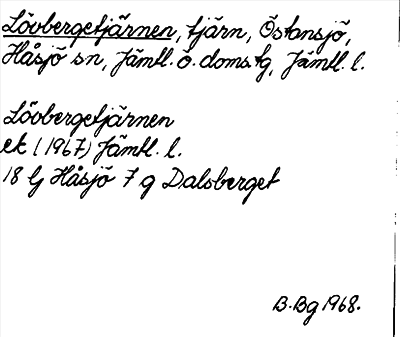 Lövbergetjärnen, tjärn, Östansjö,
Håsjö sn, Jämtl. ö. doms tg, Jämtl. l.
Lövbergetjärnen
ek (1967) Jämtl. l.
18 G Håsjö 7 g Dalsberget
B. Bg 1968.